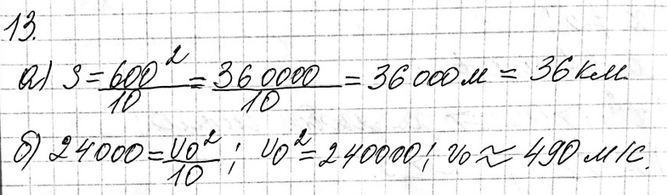 13.
а) S = 600² / 10 = 360000 / 10 = 36000 м = 36 км
б) 24000 = v0² / 10 ; v0² = 240000 ; v0 ≈ 490 м/с.